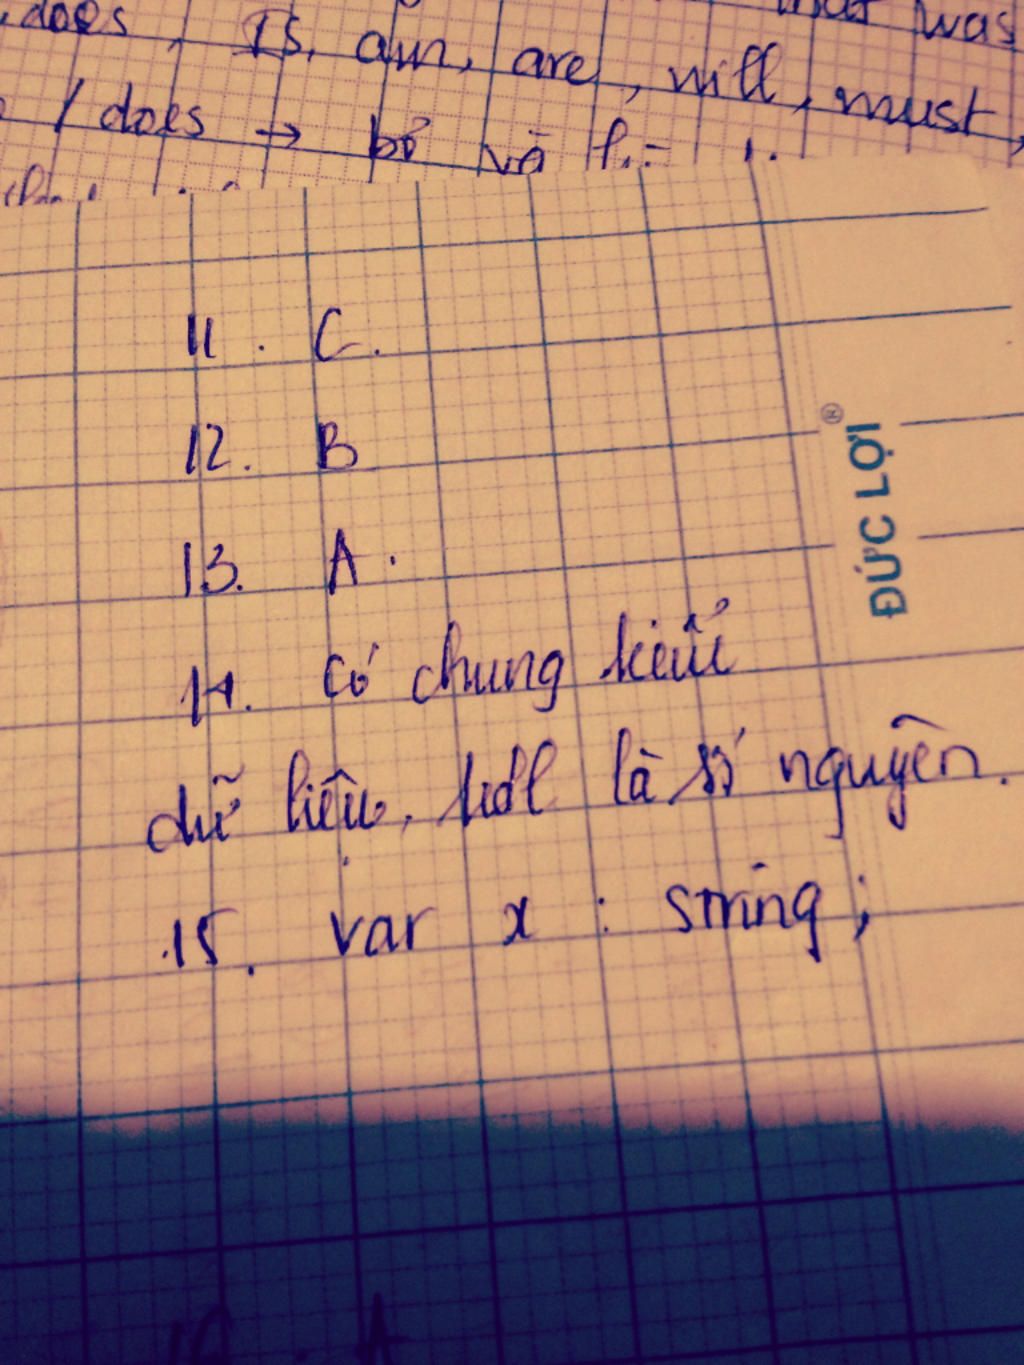 does, Is, am, are, will, must,
was
/ does → bỏ và
11. C.
12. B
13. A.
14. Có chung kiểu
dữ liệu, kdl là số nguyên.
15. var x : string;
ĐỨC LỢI®
A